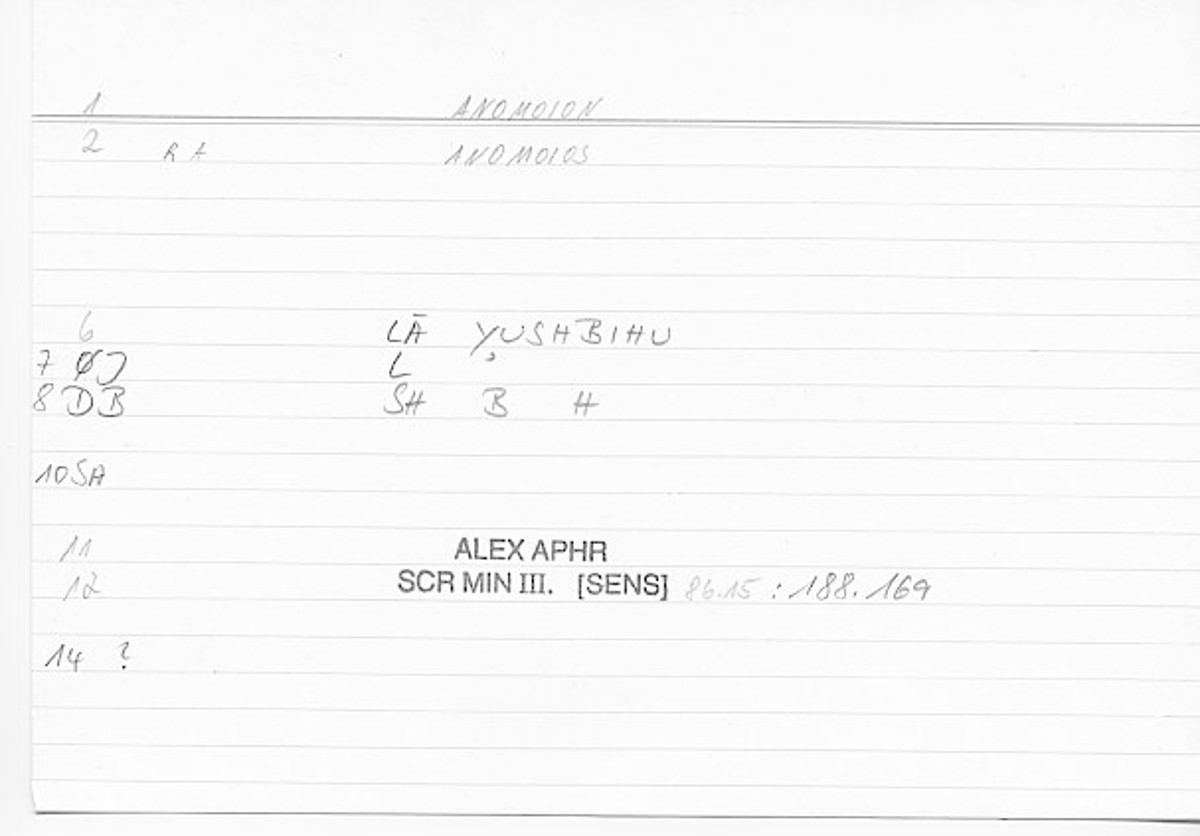 1 ANOMOION
2 R A ANOMOIOS
6 LĀ YUSHBIHU
7 ØJ L
8 DB SH B H
10 SA
11 ALEX APHR
12 SCR MIN III. [SENS] 86.15 : 188.169
14 ?